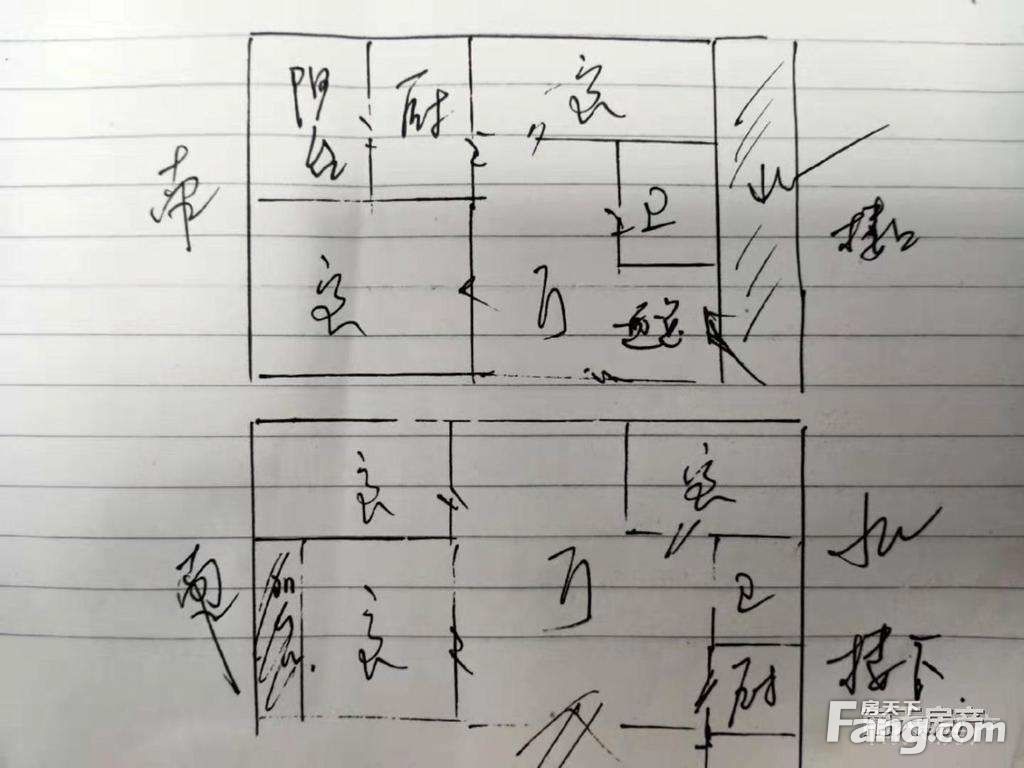 阳台
厨
室
南
卫
北
楼上
室
厅
室
室
南
厅
北
阳台
室
卫
厨
楼下
房天下
Fang.com